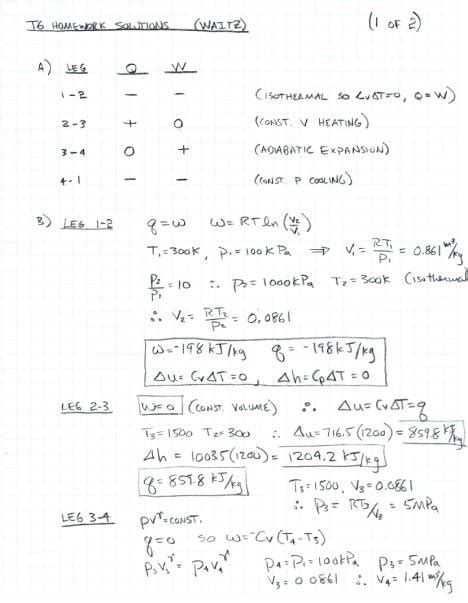 T6 HOMEWORK SOLUTIONS (WAITZ) (1 OF 2)
A) LEG Q W
1-2 — — (ISOTHERMAL SO CvΔT=0, Q=W)
2-3 + 0 (CONST. V HEATING)
3-4 0 + (ADIABATIC EXPANSION)
4-1 — — (CONST. P COOLING)
B) LEG 1-2 q=w w=RTln(V₂/V₁)
T₁=300K, P₁=100KPa ⟹ V₁=RT₁/P₁=0.861 m³/kg
P₂/P₁=10 ∴ P₂=1000KPa T₂=300K (isothermal
∴ V₂=RT₂/P₂=0.0861
w=-198 kJ/kg q=-198 kJ/kg
Δu=CvΔT=0, Δh=CpΔT=0
LEG 2-3 w=0 (CONST. VOLUME) ∴ Δu=CvΔT=q
T₃=1500 T₂=300 ∴ Δu=716.5(1200)=859.8 kJ/kg
Δh=1003.5(1200)=1204.2 kJ/kg
q=859.8 kJ/kg T₃=1500, V₃=0.0861
∴ P₃=RT₃/V₃=5MPa
LEG 3-4 PVᵞ=CONST.
q=0 SO w=-Cv(T₄-T₃)
P₃V₃ᵞ=P₄V₄ᵞ P₄=P₁=100kPa P₃=5MPa
V₃=0.0861 ∴ V₄=1.41 m³/kg